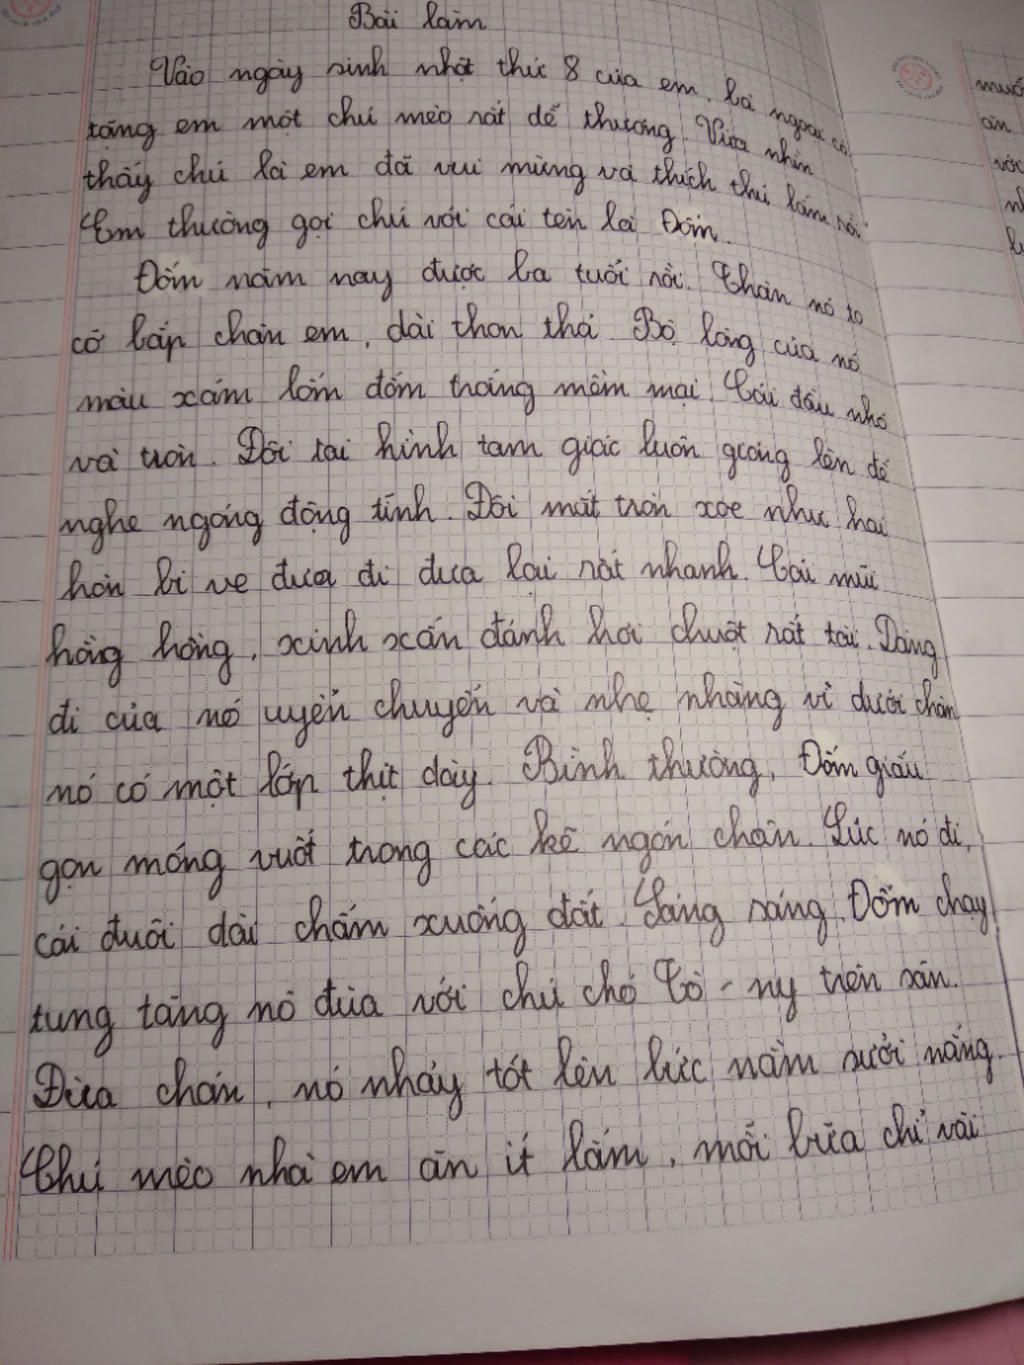 Bài làm
Vào ngày sinh nhật thứ 8 của em, bà ngoại có
tặng em một chú mèo rất dể thương. Vừa nhìn
thấy chú là em đã vui mừng và thích thú lắm rồi.
Em thường gọi chú với cái tên là Đốm.
Đốm năm nay được ba tuổi rồi. Thân nó to
cỡ bắp chân em, dài thon thả. Bộ lông của nó
màu xám lốm đốm trắng mềm mại. Cái đầu nhỏ
và tròn. Đôi tai hình tam giác luôn giương lên để
nghe ngóng động tĩnh. Đôi mắt tròn xoe như hai
hòn bi ve đưa đi đưa lại rất nhanh. Cái mũi
hồng hồng, xinh xắn đánh hơi chuột rất tài. Dáng
đi của nó uyển chuyển và nhẹ nhàng vì dưới chân
nó có một lớp thịt dày. Bình thường, Đốm giấu
gọn móng vuốt trong các kẽ ngón chân. Lúc nó đi,
cái đuôi dài chấm xuống đất. Sáng sáng, Đốm chạy
tung tăng nô đùa với chú chó Tô - ny trên sân.
Đùa chán, nó nhảy tót lên bục nằm sưởi nắng.
Chú mèo nhà em ăn ít lắm, mỗi bữa chỉ vài
muố
ăn